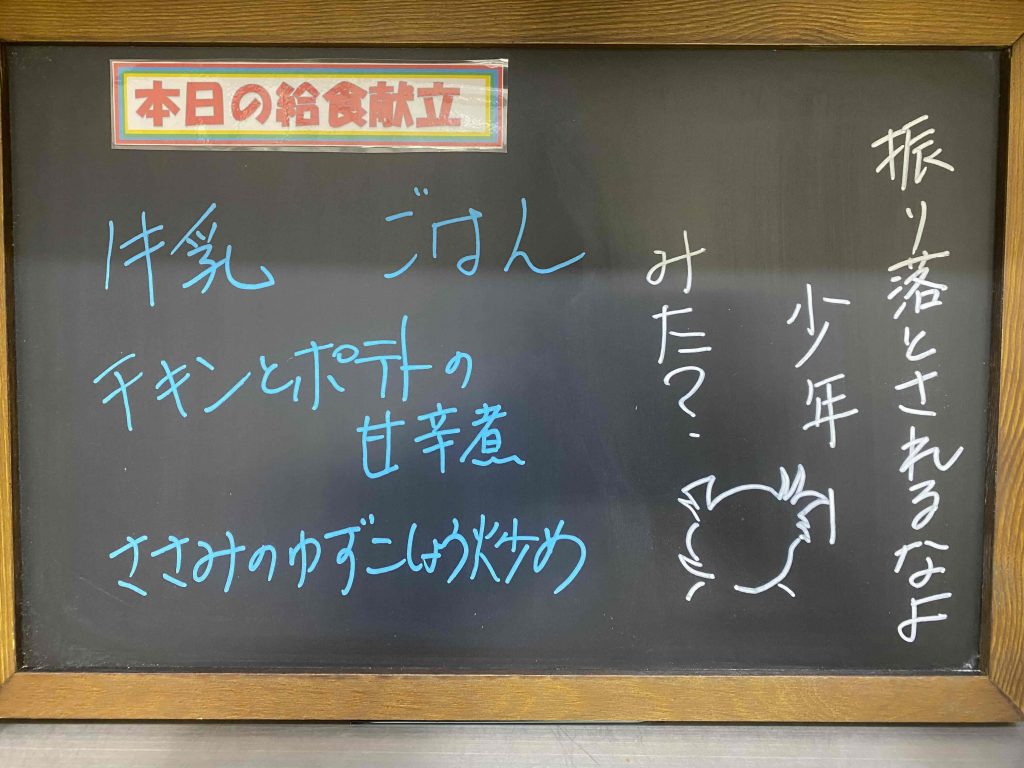 本日の給食献立
牛乳　ごはん
チキンとポテトの
甘辛煮
ささみのゆずこしょう炒め
振り落とされるなよ
少年
みた？